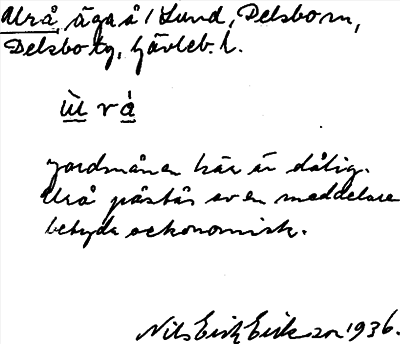 Urå, äga å i Lund, Delsbo sn,
Delsbo tg, Gävleb. l.
ù̲ r å̲
Jordmånen här är dålig.
Urå påstås av en meddelare
betyda oekonomisk.
Nils Erik Eriksson 1936.